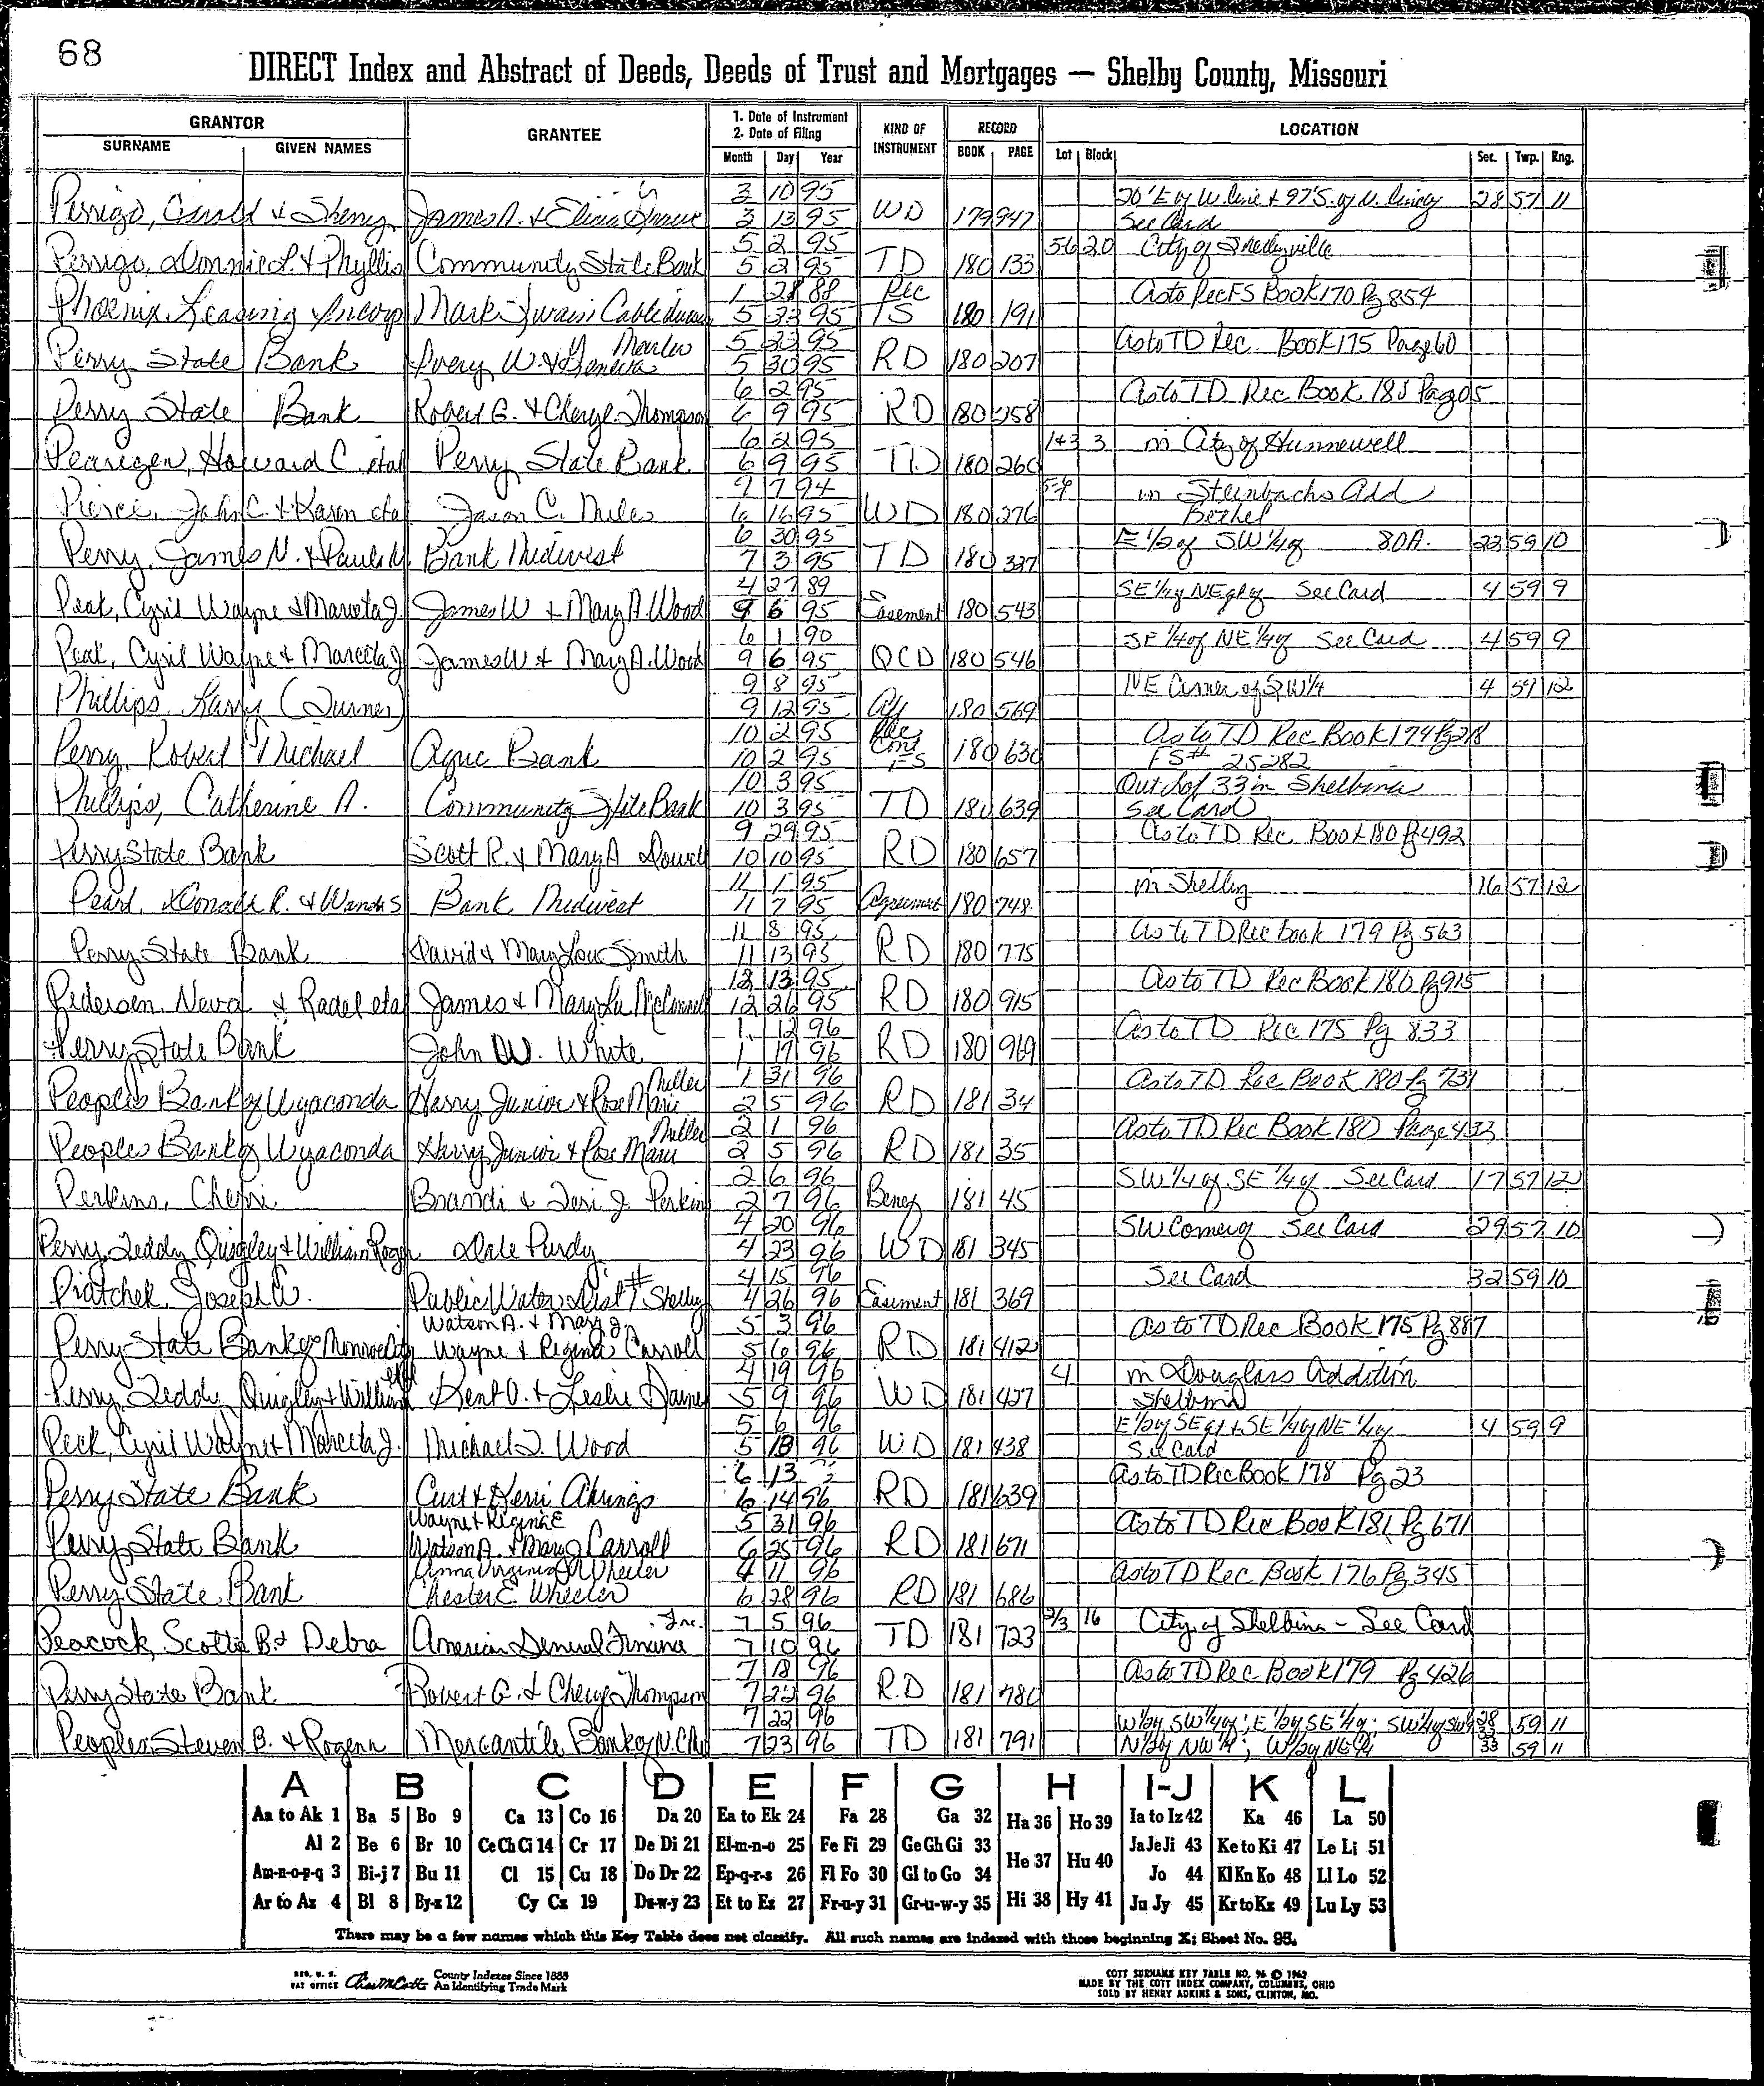 68
DIRECT Index and Abstract of Deeds, Deeds of Trust and Mortgages — Shelby County, Missouri
GRANTOR GRANTEE 1. Date of Instrument 2. Date of Filing KIND OF INSTRUMENT RECORD LOCATION
SURNAME GIVEN NAMES Month Day Year BOOK PAGE Lot Block Sec. Twp. Rng.
3 10 95 20' E of W. line + 97' S. of N. 28 57 11
Perrigo, & Sherry James A. & 3 13 95 WD 179 947 See Card
5 2 95 5-6 20 City of Shelbyville
Perrigo, Donnie L. & Phyllis Community State Bank 5 2 95 TD 180 133
1 28 88 Rec As to Rec FS Book 170 Pg 854
Phoenix Leasing Incorp Mark Twain 5 95 TS 180 191
5 95 As to TD Rec. Book 175 Page 60
Perry State Bank Avery W. & Geneva 5 30 95 RD 180 207
6 2 95 As to TD Rec Book
Perry State Bank Robert G. & Cheryl Thompson 6 9 95 RD 180 258
6 2 95 1+3 3 in City of Hunnewell
Howard C. etal Perry State Bank 6 9 95 TD 180 260
9 7 94 in Steinbachs Add
Pierce, John C. & Karen etal Jason C. 6 16 95 WD 180 276 Bethel
6 30 95 E 1/2 of SW 1/4 of 80A. 59 10
Perry, James N. & Bank Midwest 7 3 95 TD 180 327
4 27 89 SE 1/4 See Card 4 59 9
Cyril Wayne & Marceta J. James W & Mary A. Wood 9 6 95 Easement 180 543
6 1 90 SE 1/4 of NE 1/4 of See Card 4 59 9
Cyril Wayne & Marceta J James W & Mary A. Wood 9 6 95 QCD 180 546
9 8 95 NE Corner of SW 1/4 4 12
Phillips, Larry (Turner) 9 12 95 Aff 180 569
10 2 95 As to TD Rec Book 174 Pg 218
Perry, Robert Michael Bank 10 2 95 FS 180 630 FS# 25282
10 3 95 Out Lot 33 in Shelbina
Phillips, Catherine A. Community State Bank 10 3 95 TD 180 639 See Card
9 29 95 As to TD Rec Book 180 Pg 492
Perry State Bank Scott R. & Mary A 10 10 95 RD 180 657
11 1 95 in Shelby 16 57 12
Donald R. & Wanda S Bank Midwest 11 7 95 Agreement 180 748
11 8 95 As to TD Rec book 179 Pg 563
Perry State Bank David & Mary Lou Smith 11 13 95 RD 180 775
12 13 95 As to TD Rec Book 180 Pg 915
Pedersen, Neva & etal James & Mary Lu McConnell 12 26 95 RD 180 915
1 12 96 As to TD Rec 175 Pg 833
Perry State Bank John W. White 1 96 RD 180 969
Miller 1 31 96 As to TD Rec Book 180 Pg 731
Peoples Bank of Wyaconda Harry Junior & Rose Marie 2 5 96 RD 181 34
Miller 2 1 96 As to TD Rec Book 180 Page 433
Peoples Bank of Wyaconda Harry Junior & Rose Marie 2 5 96 RD 181 35
2 6 96 SW 1/4 of SE 1/4 of See Card 17 57 12
Perkins, Cherri Brandi & Teri J. Perkins 2 7 96 Benef 181 45
4 20 96 SW Corner of See Card 29 57 10
Perry, Teddy Quigley & William Roger Dale Purdy 4 23 96 WD 181 345
4 15 96 See Card 32 59 10
Piatchek, Joseph W. Public Water Dist #1 Shelby 4 26 96 Easement 181 369
Watson A. & Mary J. 5 3 96 As to TD Rec Book 175 Pg 887
Perry State Bank of Monroe City Wayne & Regina Carroll 5 6 96 RD 181 412
etal 4 19 96 4 in Douglass Addition
Perry, Teddy Quigley & William Kent O. & Leslie 5 9 96 WD 181 427 Shelbina
5 6 96 E 1/2 of SE 1/4 + SE 1/4 of NE 1/4 4 59 9
Cyril Wayne & Marceta J. Michael J. Wood 5 13 96 WD 181 438 See Card
6 13 As to TD Rec Book 178 Pg 23
Perry State Bank Curt & Kerri 6 14 96 RD 181 639
Wayne & Regina E 5 31 96 As to TD Rec Book 181 Pg 671
Perry State Bank Watson A. & Mary J Carroll 6 25 96 RD 181 671
Anna Virginia Wheeler 4 11 96 As to TD Rec Book 176 Pg 345
Perry State Bank Chester E Wheeler 6 28 96 RD 181 686
Inc. 7 5 96 2/3 16 City of Shelbina - See Card
Peacock, Scottie B. & Debra American General Finance 7 10 96 TD 181 723
7 18 96 As to TD Rec. Book 179 Pg 426
Perry State Bank Robert G. & Cheryl Thompson 7 22 96 RD 181 780
7 22 96 W 1/2 of SW 1/4 of; E 1/2 of SE 1/4 of; SW 1/4 of SW 1/4 28 59 11
Peoples, Steven B. & Rogena Mercantile Bank of N.C. Mo 7 23 96 TD 181 791 N 1/2 of NW 1/4; W 1/2 of NE 1/4 33 59 11
A B C D E F G H I-J K L
Aa to Ak 1 Ba 5 Bo 9 Ca 13 Co 16 Da 20 Ea to Ek 24 Fa 28 Ga 32 Ha 36 Ho 39 Ia to Iz 42 Ka 46 La 50
Al 2 Be 6 Br 10 Ce Ch Ci 14 Cr 17 De Di 21 El-m-n-o 25 Fe Fi 29 Ge Gh Gi 33 He 37 Hu 40 Ja Je Ji 43 Ke to Ki 47 Le Li 51
Am-n-o-p-q 3 Bi-j 7 Bu 11 Cl 15 Cu 18 Do Dr 22 Ep-q-r-s 26 Fl Fo 30 Gl to Go 34 Jo 44 Kl Kn Ko 48 Ll Lo 52
Ar to Az 4 Bl 8 By-z 12 Cy Cz 19 Du-w-y 23 Et to Ez 27 Fr-u-y 31 Gr-u-w-y 35 Hi 38 Hy 41 Ju Jy 45 Kr to Kz 49 Lu Ly 53
There may be a few names which this Key Table does not classify. All such names are indexed with those beginning X; Sheet No. 95.
REG. U. S. PAT OFFICE County Indexes Since 1888 An Identifying Trade Mark
COTT SURNAME KEY TABLE NO. 96 © 1962
MADE BY THE COTT INDEX COMPANY, COLUMBUS, OHIO
SOLD BY HENRY ADKINS & SONS, CLINTON, MO.